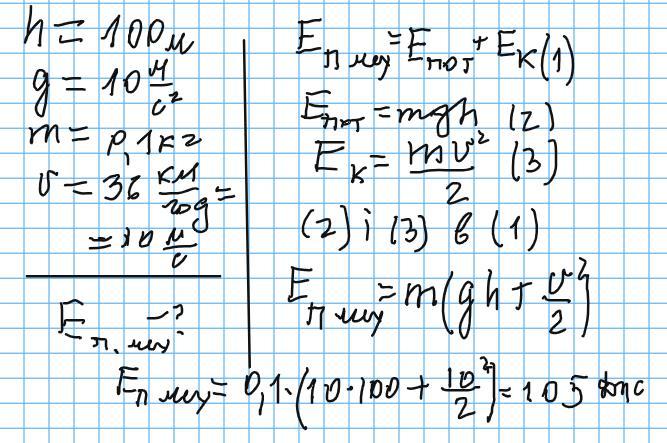 h = 100м
g = 10 м/с²
m = 0,1кг
v = 36 км/год =
= 10 м/с
Eп. мех - ?
Eп мех = Eпот + Eк (1)
Eпот = mgh (2)
Eк = mv²/2 (3)
(2) і (3) в (1)
Eп мех = m(gh + v²/2)
Eп мех = 0,1·(10·100 + 10²/2) = 105 Дж